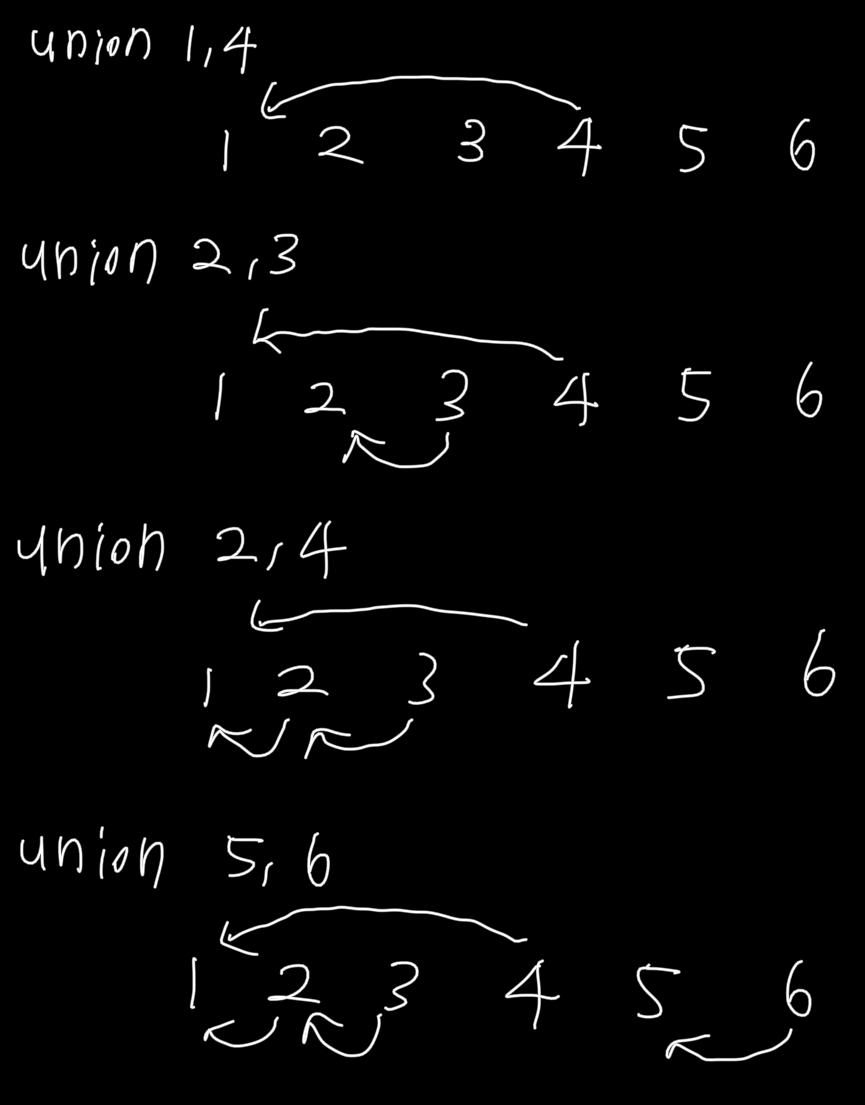 union 1,4
1 2 3 4 5 6
union 2,3
1 2 3 4 5 6
union 2,4
1 2 3 4 5 6
union 5,6
1 2 3 4 5 6